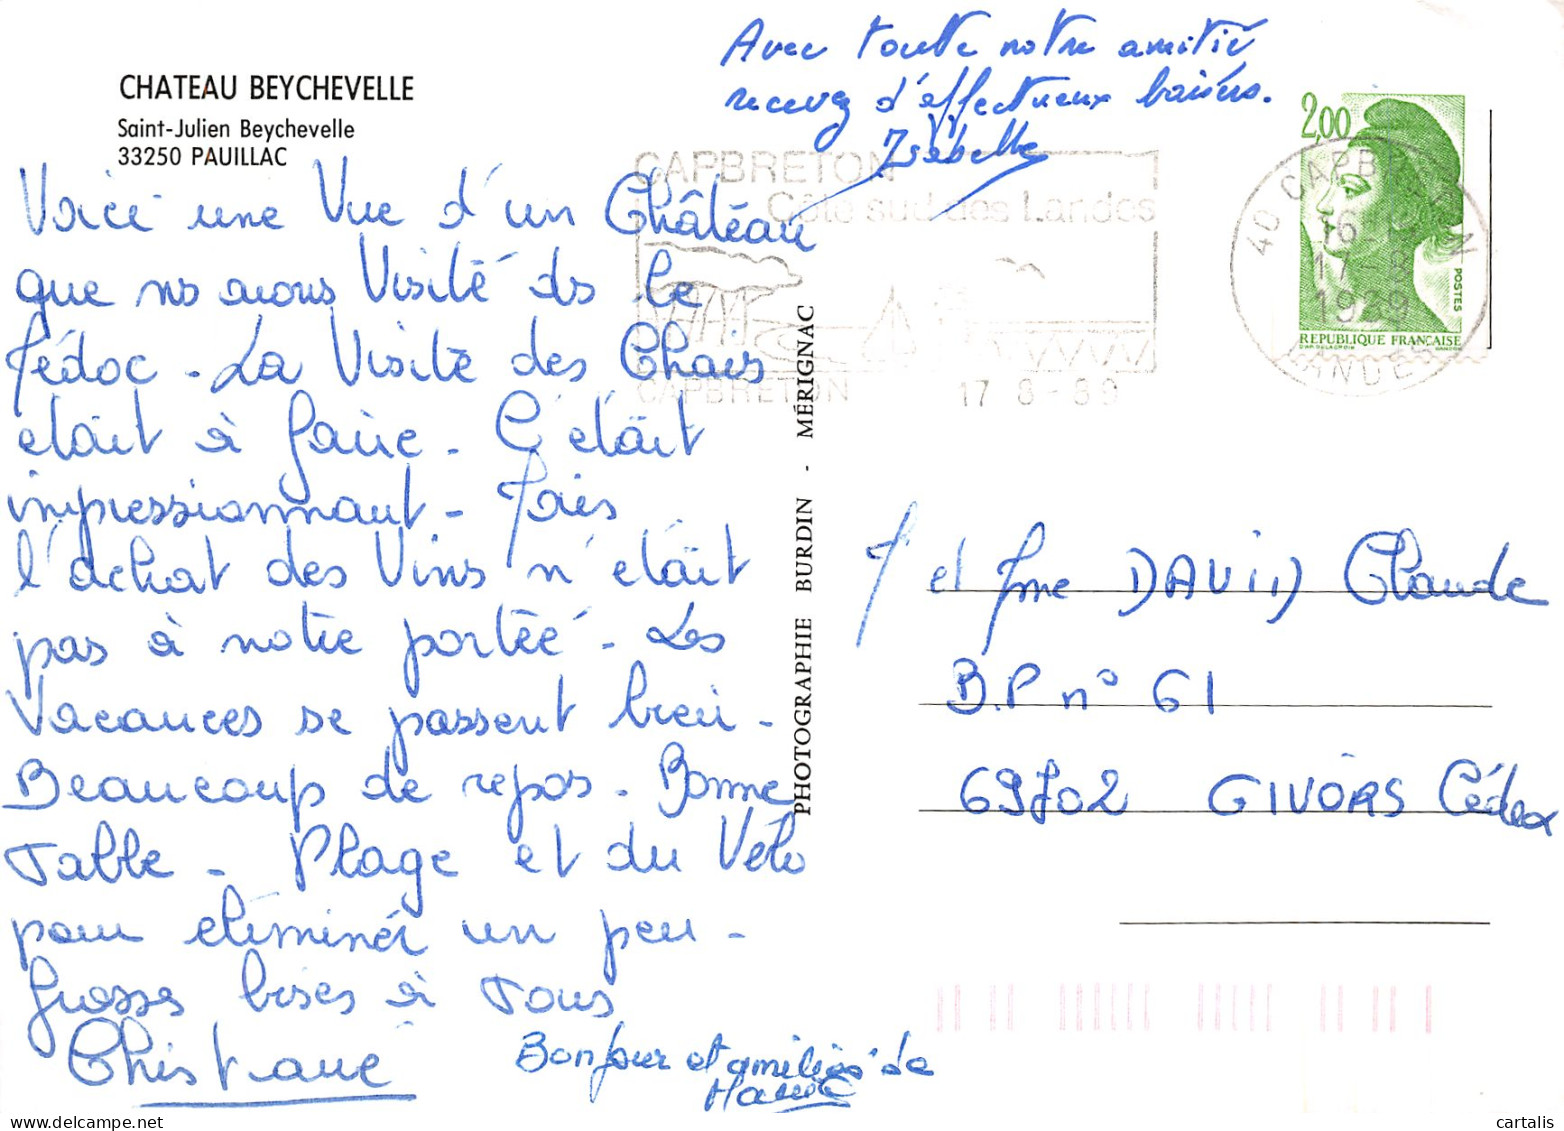 CHATEAU BEYCHEVELLE
Saint-Julien Beychevelle
33250 PAUILLAC
Avec toutte notre amitié
recevez d'affectueux baisers.
Isabelle
Voici une Vue d'un Château
que ns avons Visité ds le
Médoc - La Visite des Chais
était à faire - C'était
impressionnant - Mais
l'achat des Vins n'était
pas à notre portée - Les
Vacances se passent bien -
Beaucoup de repos - Bonne
Table - Plage et du Vélo
pour éliminer un peu -
Grosses bises à Tous
Christiane
Bonjour et amitiés de
PHOTOGRAPHIE BURDIN - MÉRIGNAC
CAPBRETON
Côte sud des Landes
CAPBRETON 17 8-89
40 CAPBRETON
16
17-8
1989
LANDES
2,00
POSTES
REPUBLIQUE FRANÇAISE
M et Mme DAVID Claude
B.P n° 61
69702 GIVORS Cédex
cartalis | delcampe.net